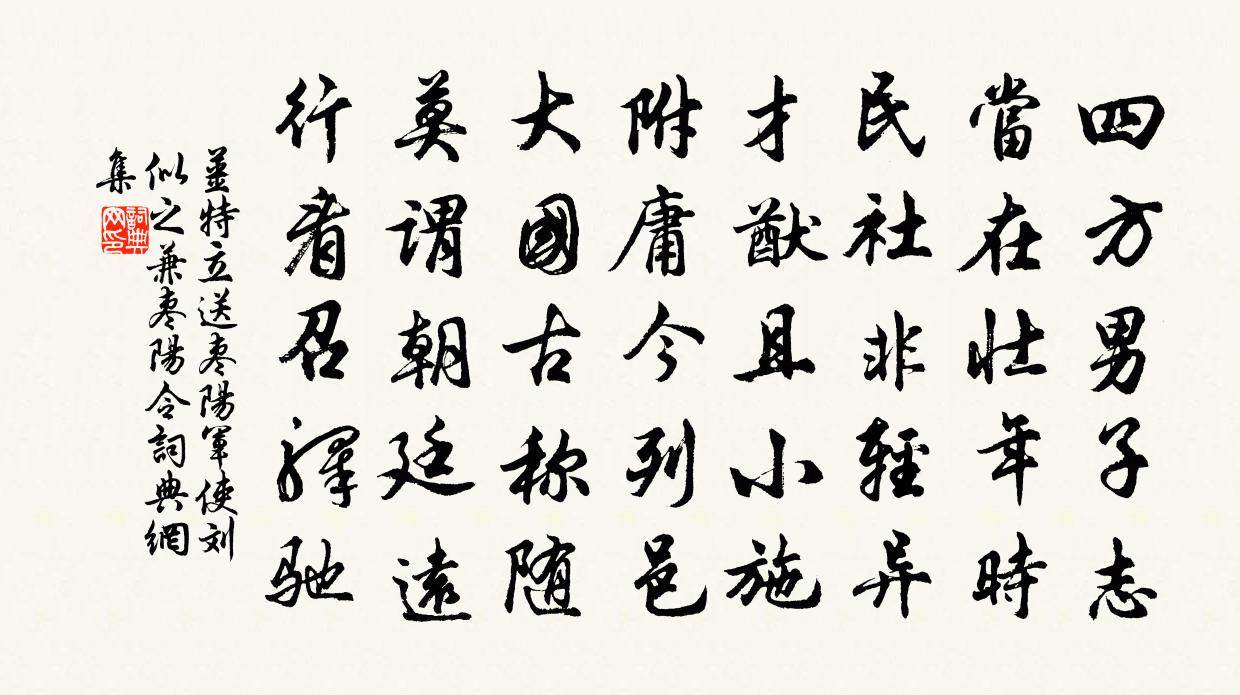 四方男子志
當在壮年時
民社非輕异
才猷且小施
附庸今列邑
大國古称随
莫謂朝廷遠
行看召驛馳
薑特立送枣陽軍使刘
似之兼枣陽令詞典網
集
詞典
网印